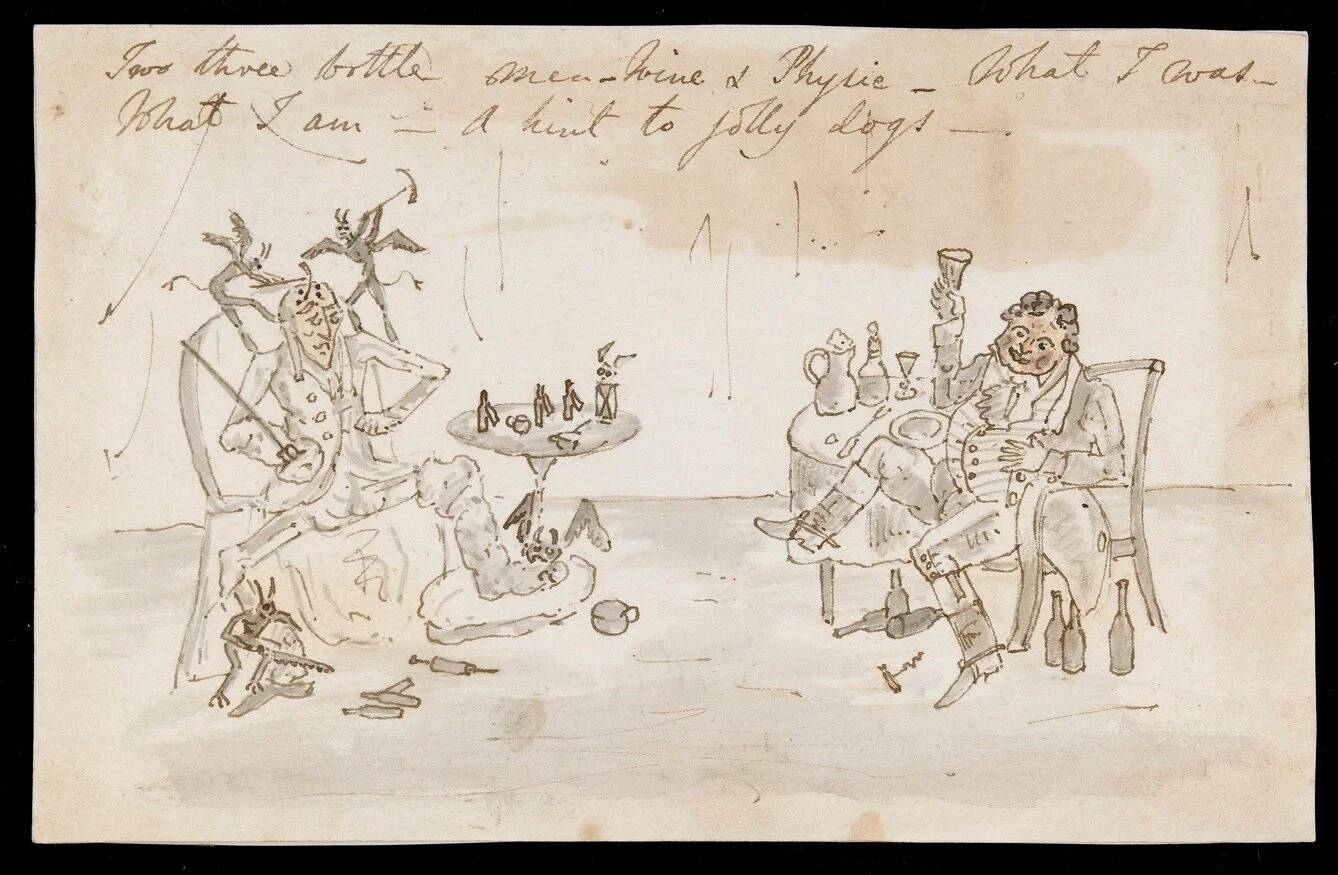 Two three bottle men - Wine & Physic - What I was -
What I am - A hint to jolly dogs -